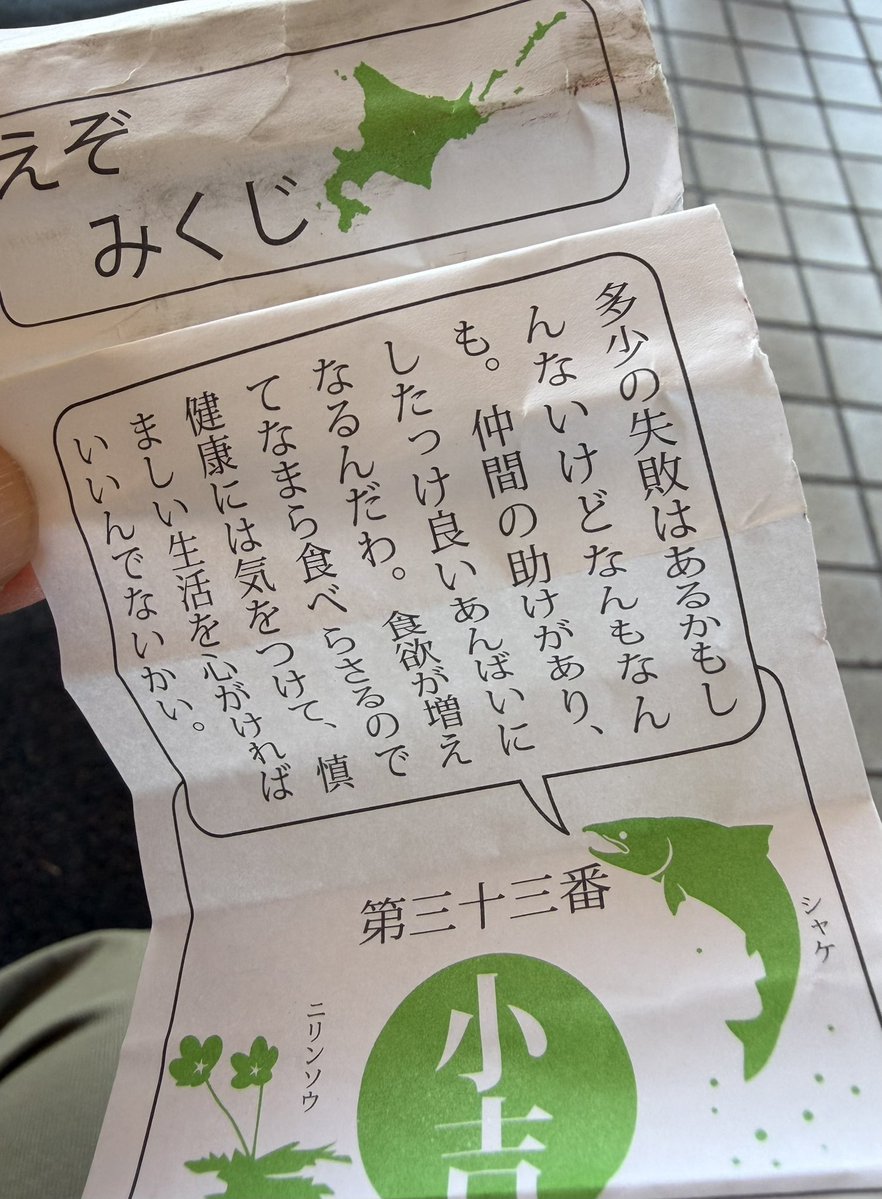 えぞ
みくじ
多少の失敗はあるかもし
んないけどなんもなん
も。仲間の助けがあり、
したっけ良いあんばいに
なるんだわ。食欲が増え
てなまら食べらさるので
健康には気をつけて、慎
ましい生活を心がければ
いいんでないかい。
第三十三番
シャケ
ニリンソウ
小吉